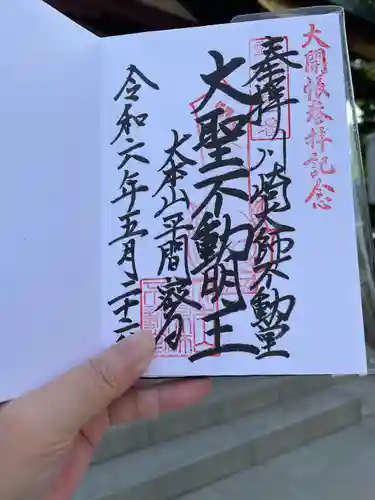 大開帳参拝記念
奉拝
川崎大師不動堂
大聖不動明王
大本山平間寺
令和六年五月二十